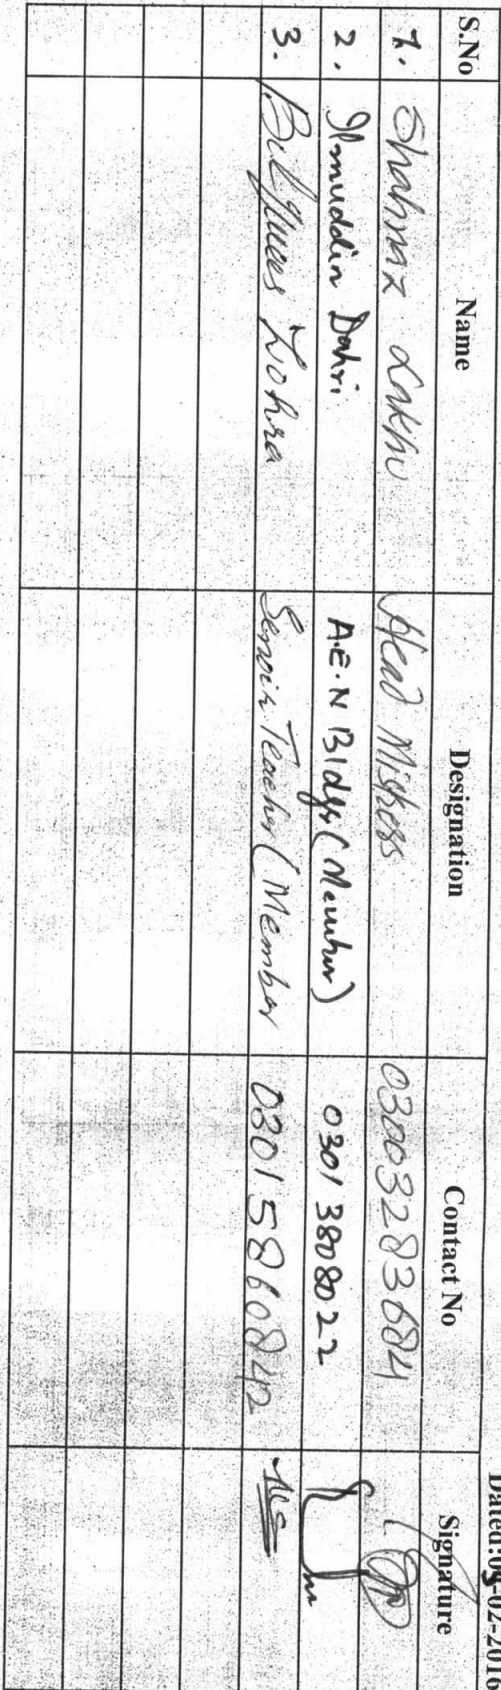 Dated:05-02-2016
S.No Name Designation Contact No Signature
1. Shahnaz Lakho Head Mistress 03003283684
2. Ilmuddin Dahri A.E.N Bldgs (Member) 03013808022
3. Bilquees Zohra Senoir Teacher (Member 03015860842